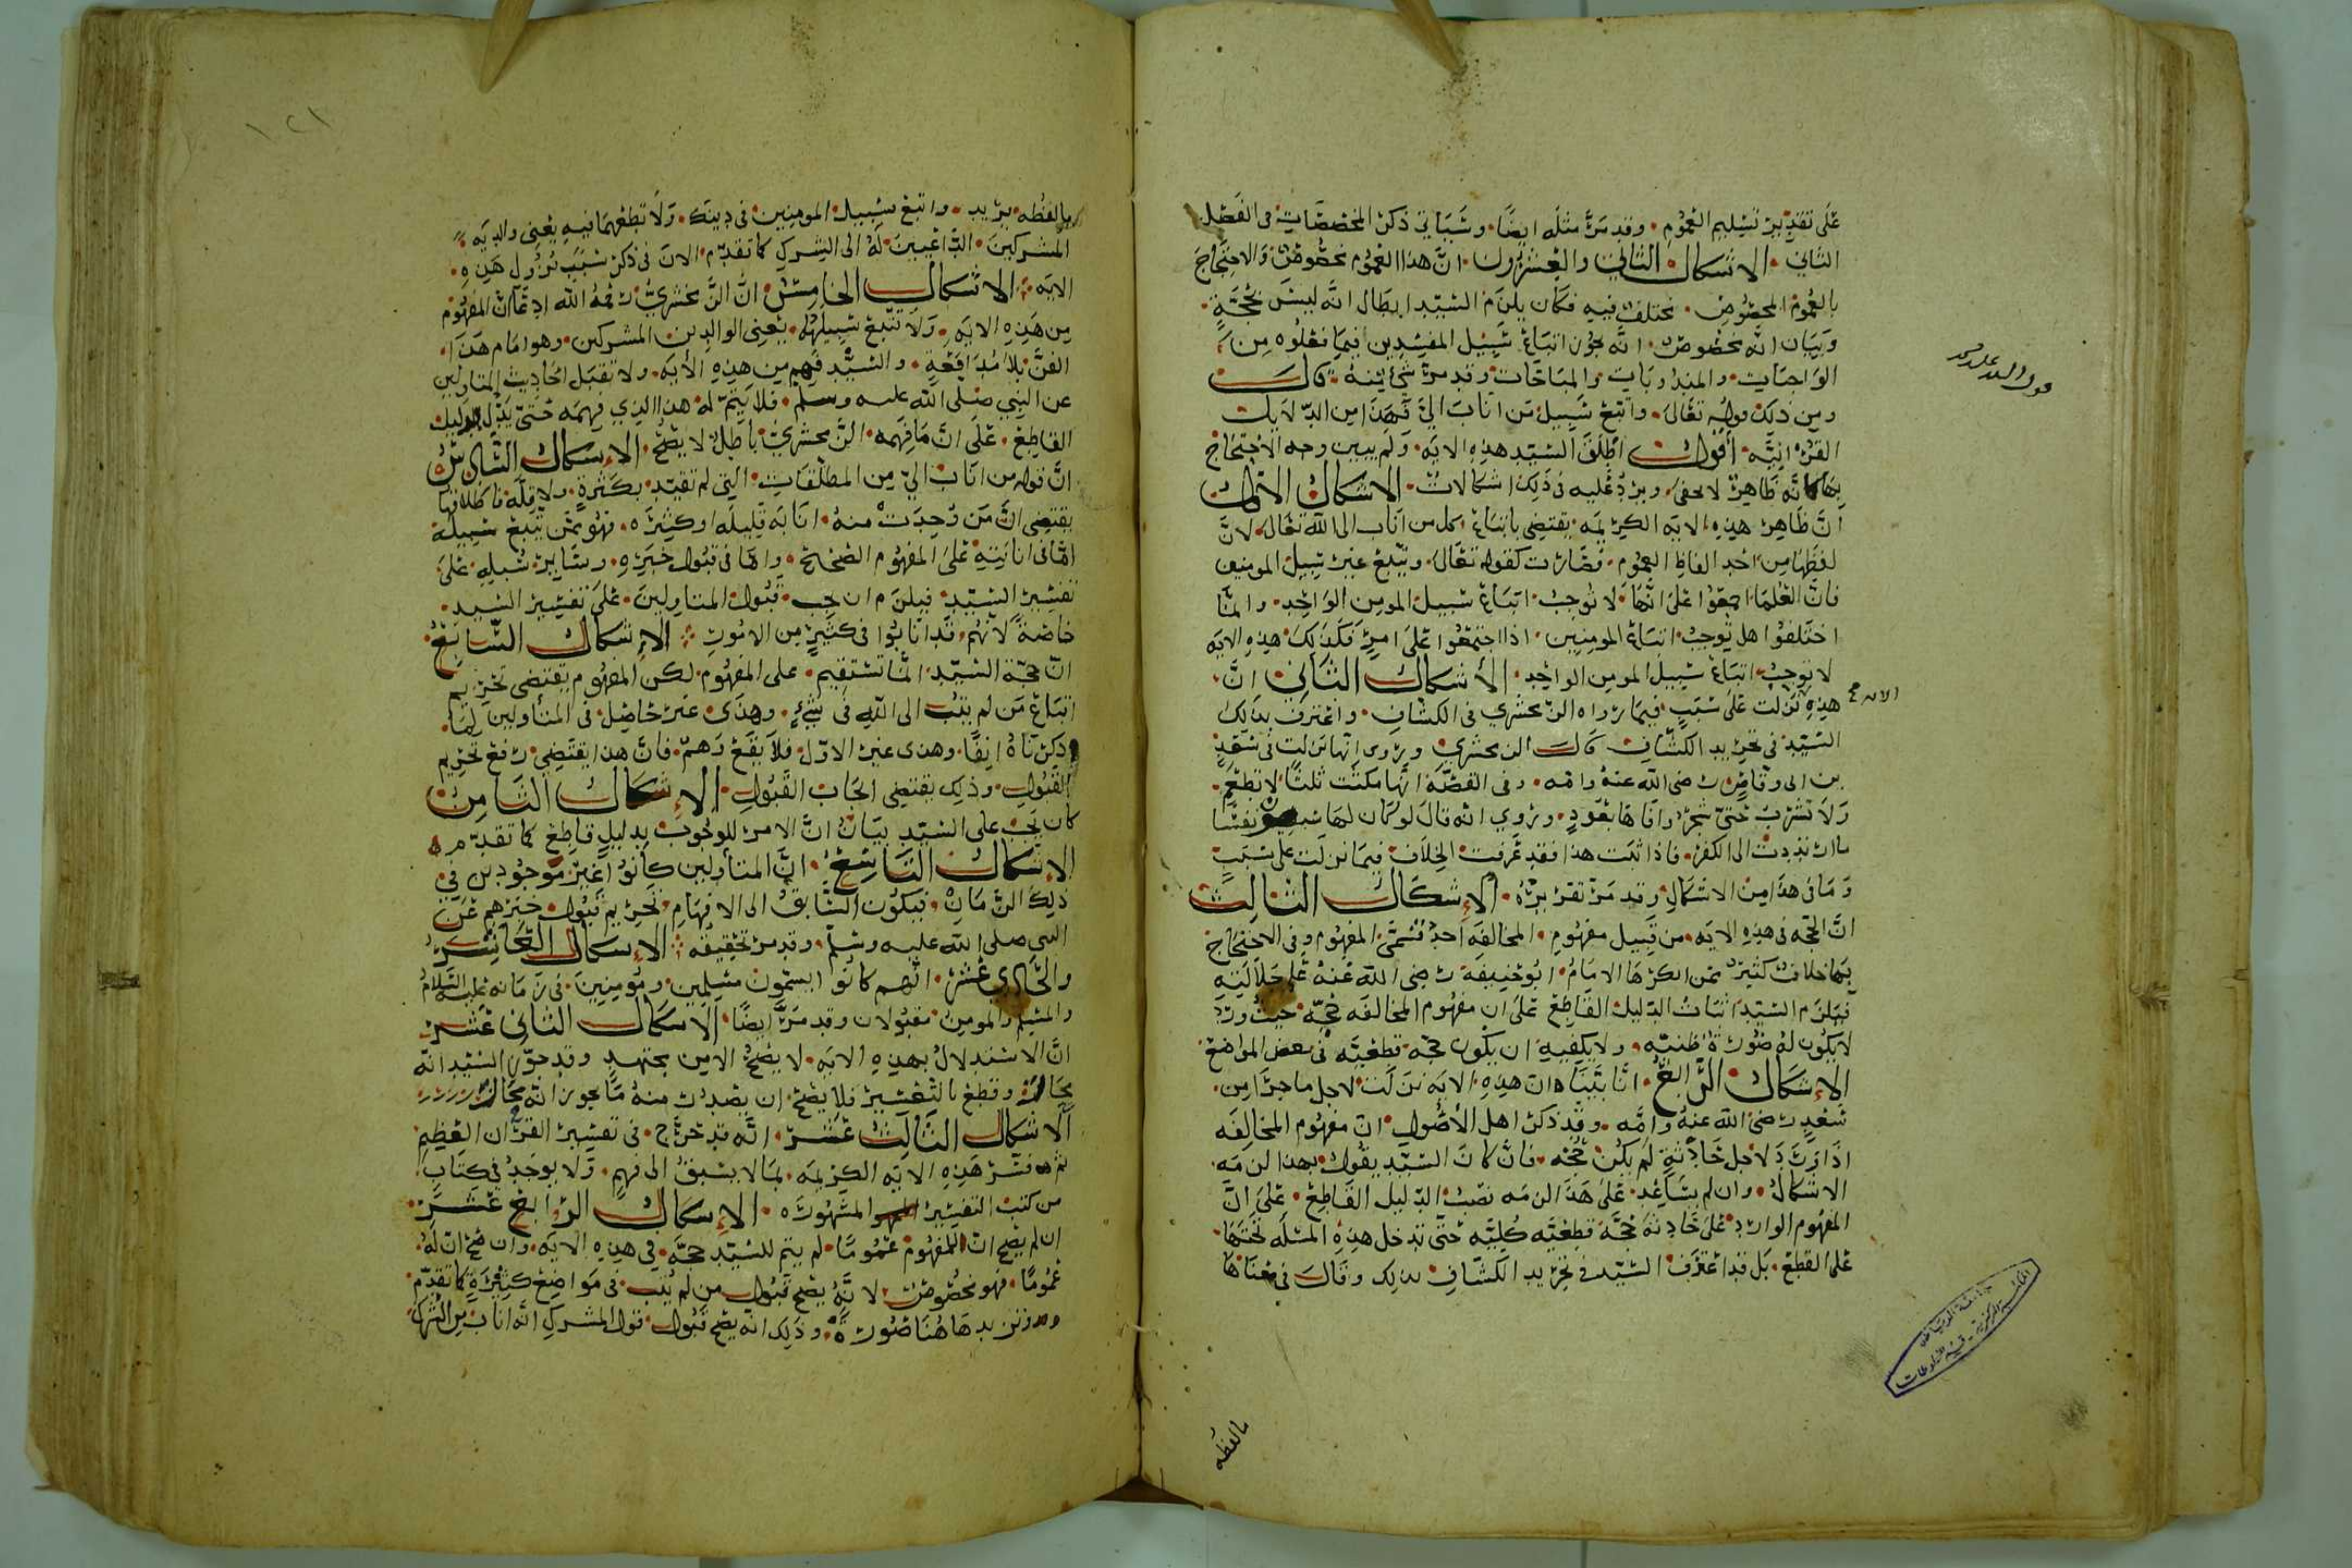 على تقدير تسليم العموم وقد مر مثله ايضا وسياتي ذكر المخصصات في الفصل
الثاني الاشكال الثاني والعشرون ان هذا العموم مخصوص والاحتجاج
بالعموم المخصوص مختلف فيه فكان يلزم السيد ابطال انه ليس بحجة
وبيان انه مخصوص انه يجوز اتباع سبيل المفسدين فيما فعلوه من
الواجبات والمندوبات والمباحات وقد مر شي منه قال
ومن ذلك قوله تعالى واتبع سبيل من اناب الي فهذا من الدلايل
القرانيه اقول اطلق السيد هذه الايه ولم يبين وجه الاحتجاج
بها كانه ظاهر لا يخفى ويرد عليه في ذلك اشكالات الاشكال الاول
ان ظاهر هذه الايه الكريمه يقتضي باتباع كل من اناب الى الله تعالى لان
لفظها من احد الفاظ العموم فصارت كقوله تعالى ويتبع غير سبيل المومنين
فان العلما اجمعوا على انها لا توجب اتباع سبيل المومن الواحد وانما
اختلفوا هل توجب اتباع المومنين اذا اجتمعوا على امر فكذلك هذه الايه
لا توجب اتباع سبيل المومن الواحد الاشكال الثاني ان
هذه نزلت على سبب فيما رواه الزمخشري في الكشاف واعترف بذلك
الايه صح
السيد في تجريد الكشاف قال الزمخشري وروى انها نزلت في سعد
بن ابي وقاص رضي الله عنه وامه وفي القصه انها مكثت ثلثا لا تطعم
ولا تشرب حتى شجروا فاها بعود وروي انه قال لو كان لها سبعون نفسا
ما ارتددت الى الكفر فاذا ثبت هذا فقد عرفت الخلاف فيما نزلت على سبب
وما في هذا من الاشكال وقد مر تقريره الاشكال الثالث
ان الحجه في هذه الايه من قبيل مفهوم المخالفه احد قسمى المفهوم وفي الاحتجاج
بها خلاف كثير ممن انكرها الامام ابو حنيفة رضي الله عنه على جلالته
فيلزم السيد اثبات الدليل القاطع على ان مفهوم المخالفه حجه حيث ورد
لا يكون له صورة ظنيه ولا يكفيه ان يكون حجه قطعيه في بعض المواضع
الاشكال الرابع انا بينا ان هذه الايه نزلت لاجل ما جرا من
سعد رضي الله عنه وامه وقد ذكر اهل الاصول ان مفهوم المخالفه
اذا ورد لاجل حادثة لم يكن حجه فان كان السيد يقول بهذا لزمه
الاشكال وان لم يساعد على هذا لزمه نصب الدليل القاطع على ان
المفهوم الوارد على حادثة حجة قطعيه كليه حتى تدخل هذه المسله تحتها
على القطع بل قد اعترف السيد في تجريد الكشاف بذلك وقال في معناها
ما لفظه
ما لفظه يريد واتبع سبيل المومنين في دينك ولا تطعهما فيه يعني والديه
المشركين الداعيين له الى الشرك كما تقدم الان في ذكر سبب نزول هذه
الايه الاشكال الخامس ان الزمخشري رحمه الله ادعا ان المفهوم
من هذه الايه ولا تتبع سبيلهما يعني الوالدين المشركين وهو امام هذا
الفن بلا مدافعة والسيد فهم من هذه الايه ولا تقبل احاديث المتاولين
عن النبي صلى الله عليه وسلم فلا يتم له هذا الذي فهمه حتى يدل الدليل
القاطع على ان ما فهمه الزمخشري باطل لا يصح الاشكال السادس
ان قوله من اناب الي من المطلقات التي لم تقيد بكثرة ولا قلة فاطلاقها
يقتضي ان من وجدت منه انابه قليله او كثيره فهو ممن يتبع سبيله
اما في انابته على المفهوم الصحيح واما في قبول خبره وساير سبله على
تفسير السيد فيلزم ان يجب قبول المتاولين على تفسير السيد
خاصة لانهم قد انابوا في كثير من الامور الاشكال السابع
ان حجة السيد انما تستقيم على المفهوم لكن المفهوم يقتضي تحريم
اتباع من لم ينب الى الله في شيء وهذا غير حاصل في المتأولين لما
ذكرناه انفا وهذا غير الاول فلا يقع وهم فان هذا يقتضي رفع تحريم
القبول وذلك يقتضي ايجاب القبول الاشكال الثامن
كان يجب على السيد بيان ان الامر للوجوب بدليل قاطع كما تقدم
الاشكال التاسع ان المتأولين كانوا غير موجودين في
ذلك الزمان فيكون السابق الى الافهام تحريم قبول خبرهم عن
النبي صلى الله عليه وسلم وقد مر تحقيقه الاشكال العاشر
والحادي عشر انهم كانوا يسمون مسلمين ومومنين في زمانه عليه السلام
والمسلم والمومن مقبولان وقد مر ايضا الاشكال الثاني عشر
ان الاستدلال بهذه الايه لا يصح الا من مجتهد وقد جوز السيد انه
محال وقطع بالتعسير فلا يصح ان يصدر منه ما يجوز انه محال
الاشكال الثالث عشر انه قد حرج في تفسير القران العظيم
ثم فسر هذه الايه الكريمه بما لا يسبق الى فهم ولا يوجد في كتاب
من كتب التفسير المشهوره الاشكال الرابع عشر
ان لم يصح ان للمفهوم عموما لم يتم للسيد حجة في هذه الايه وان صح ان له
عموما فهو مخصوص لانه يصح قبول من لم ينب في مواضع كثيرة كما تقدم
ونزيد هاهنا صورة وذلك انه يصح قبول قول المشرك انه اناب من الشرك
١٢١
جامعة الرياض
المكتبة المركزية - قسم المخطوطات